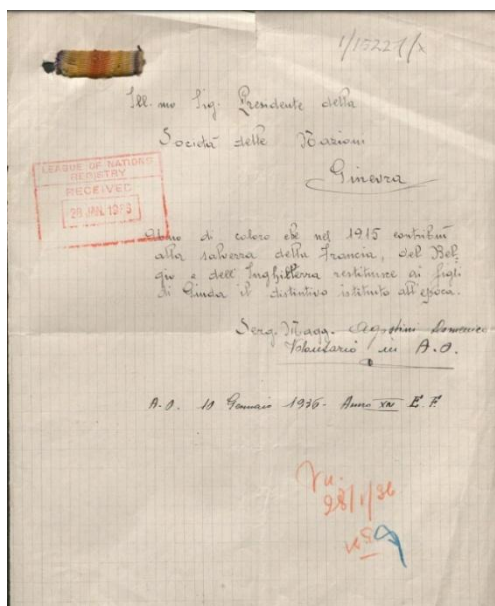 1/15227/x
Ill.mo Sig. Presidente della
Società delle Nazioni
Ginevra
LEAGUE OF NATIONS
REGISTRY
RECEIVED
28 JAN. 1936
Uno di coloro che nel 1915 contribuì
alla salvezza della Francia, del Bel-
gio e dell'Inghilterra restituisce ai figli
di Giuda il distintivo istituito all'epoca.
Serg. Magg. Agostini Domenico
Volontario in A.O.
A.O. 10 Gennaio 1936 - Anno XIV E.F.
28/1/36